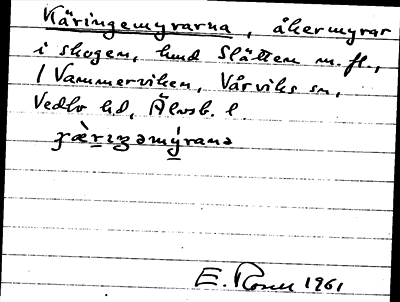 Käringemyrarna, åkermyrar
i skogen, hmd Slätten m. fl.,
/ Vammerviken, Vårviks sn,
Vedbo hd, Älvsb. l
E. Rosell 1961